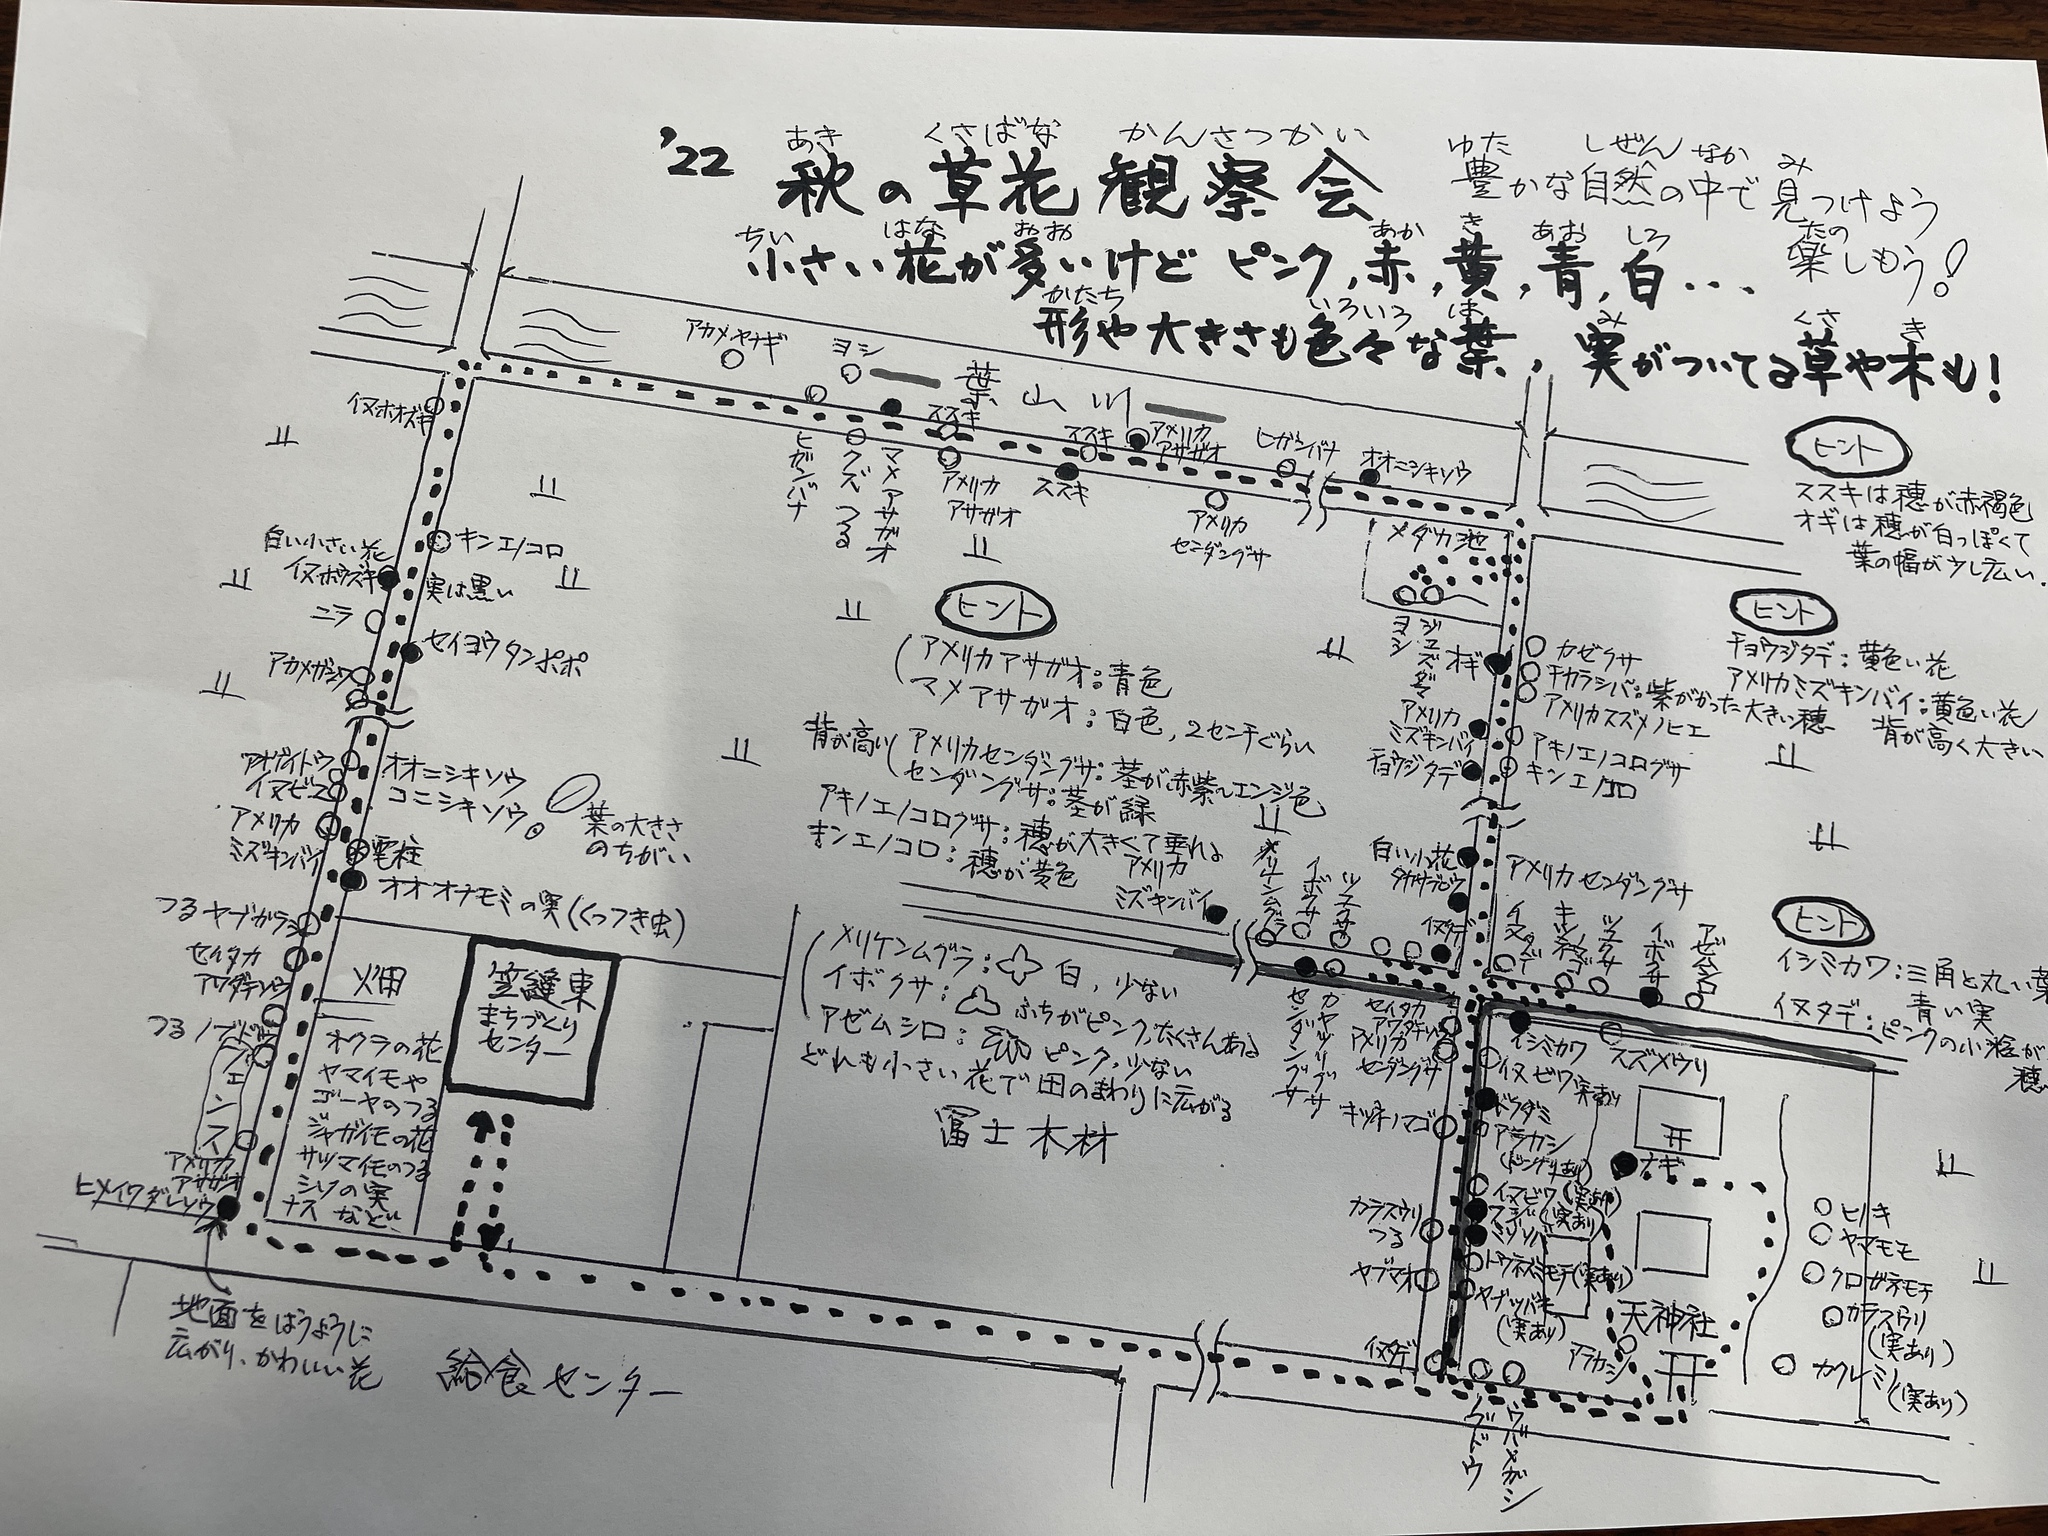 '22
あき くさばな かんさつかい
秋の草花観察会
ゆた しぜん なか み
豊かな自然の中で見つけよう
たの
楽しもう!
ちい はな おお あか き あお しろ
小さい花が多いけど ピンク,赤,黄,青,白...
かたち いろいろ は み くさ き
形や大きさも色々な葉,実がついてる草や木も!
アカメヤナギ
ヨシ
葉山川
イヌホオズキ
ヒガンバナ
クズつる
マメアサガオ
ススキ
アメリカ
アサガオ
ススキ
ススキ
アメリカ
アサガオ
ヒガンバナ
オオニシキソウ
アメリカ
センダングサ
メダカ池
ヨシ
ジュズダマ
オギ
カゼクサ
チカラシバ:紫がかった大きい穂
アメリカスズメノヒエ
アメリカ
ミズキンバイ
チョウジタデ
アキノエノコログサ
キンエノコロ
ヒント
ススキは穂が赤褐色
オギは穂が白っぽくて
葉の幅が少し広い.
ヒント
チョウジタデ:黄色い花
アメリカミズキンバイ:黄色い花
背が高く大きい
ヒント
イシミカワ:三角と丸い葉
青い実
イヌタデ:ピンクの小粒が
穂
キンエノコロ
白い小さい花
イヌホウズキ
実は黒い
ニラ
セイヨウタンポポ
アカメガシワ
オオニシキソウ
コニシキソウ
葉の大きさ
のちがい
イヌビユ
アメリカ
ミズキンバイ
電柱
オオオナモミの実(くっつき虫)
つるヤブガラシ
セイタカ
アワダチソウ
つるノブドウ
フェンス
アメリカ
アサガオ
ヒメイワダレソウ
地面をはうように
広がり、かわいい花
畑
オクラの花
ヤマイモや
ゴーヤのつる
ジャガイモの花
サツマイモのつる
シソの実
ナスなど
笠縫東
まちづくり
センター
給食センター
ヒント
アメリカアサガオ:青色
マメアサガオ:白色,2センチぐらい
背が高い
アメリカセンダングサ:茎が赤紫〜エンジ色
センダングサ:茎が緑
アキノエノコログサ:穂が大きくて垂れる
キンエノコロ:穂が黄色
アメリカ
ミズキンバイ
メリケンムグラ
イボクサ
イヌタデ
白い小花
タカサブロウ
アメリカセンダングサ
イヌタデ
イボクサ
アゼムシロ
メリケンムグラ:白,少ない
イボクサ:ふちがピンク,たくさんある
アゼムシロ:ピンク,少ない
どれも小さい花で田のまわりに広がる
冨士木材
センダングサ
カヤツリグサ
セイタカ
アワダチソウ
アメリカ
センダングサ
キツネノマゴ
カラスウリ
つる
ヤブマオ
イヌタデ
イシミカワ
スズメウリ
イヌビワ(実あり)
ドクダミ
アラカシ
(ドングリあり)
ナギ
イヌビワ(実あり)
ミゾソバ
トウネズミモチ(実あり)
ヤブツバキ
(実あり)
天神社
アラカシ
ノブドウ
ウバメガシ
ヒノキ
ヤマモモ
クロガネモチ
カラスウリ
(実あり)
カクレミノ
(実あり)